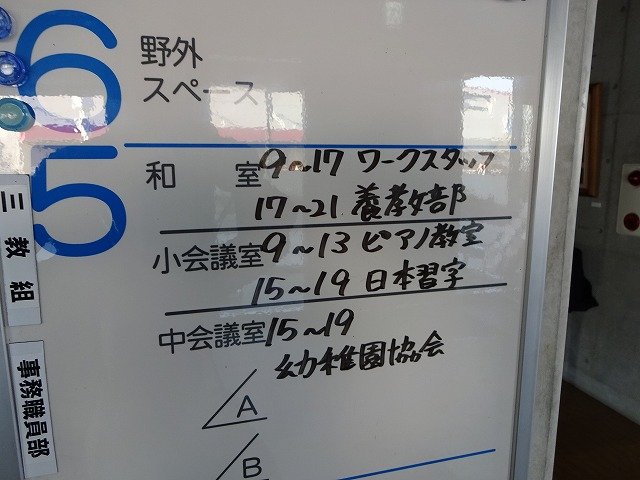 6
野外
スペース
5
和 室 9~17 ワークスタッフ
17~21 養教部
小会議室 9~13 ピアノ教室
15~19 日本習字
中会議室 15~19
幼稚園協会
A
B
三教組
事務職員部